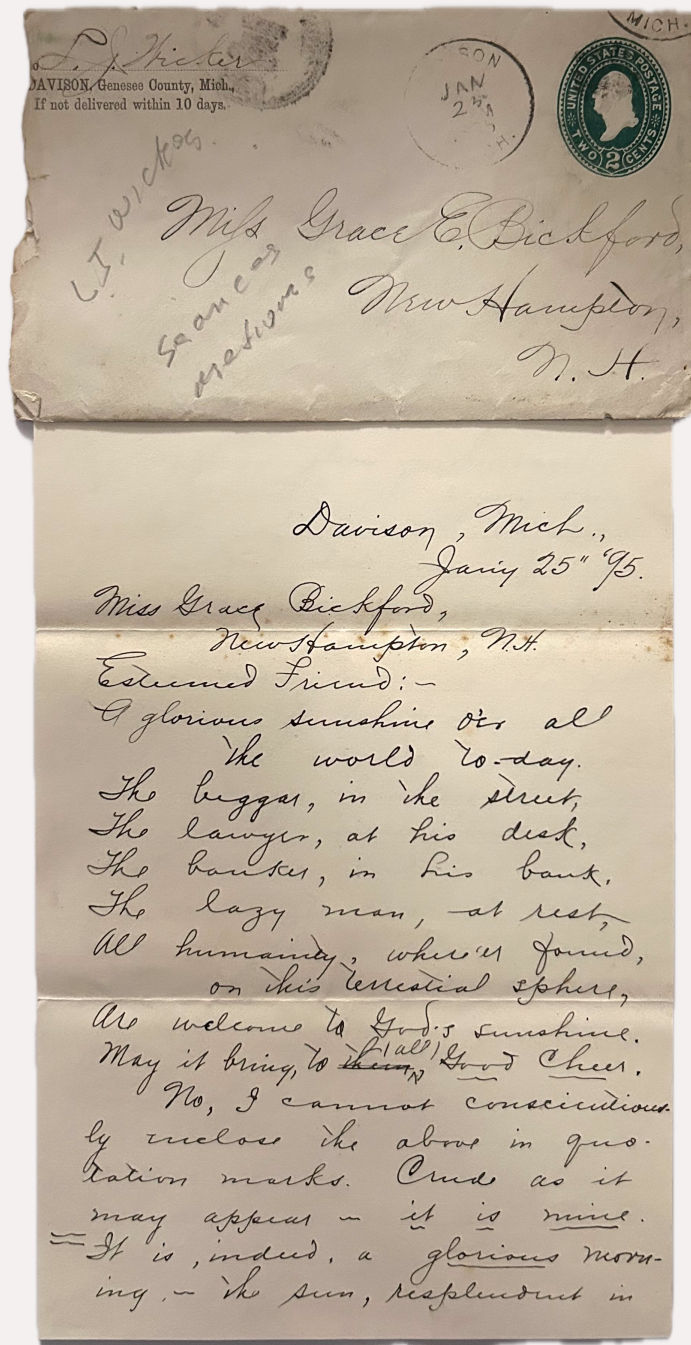 L. J. Wicker
DAVISON, Genesee County, Mich.,
If not delivered within 10 days.
MICH.
JAN
UNITED STATES POSTAGE
TWO 2 CENTS
L. J. Wicker
Seances
Miss Grace E. Bickford,
New Hampton,
N. H.
Davison, Mich.,
Jan'y 25" '95.
Miss Grace Bickford,
New Hampton, N.H.
Esteemed Friend:-
A glorious sunshine o'er all
the world to-day.
The beggar, in the street,
The lawyer, at his desk,
The banker, in his bank,
The lazy man, at rest,
All humainty, where'er found,
on this terrestial sphere,
Are welcome to God's sunshine.
May it bring, to them (all) Good Cheer.
No, I cannot conscientious-
ly inclose the above in quo-
tation marks. Crude as it
may appear - it is mine.
It is, indeed, a glorious morn-
ing, - the sun, resplendent in